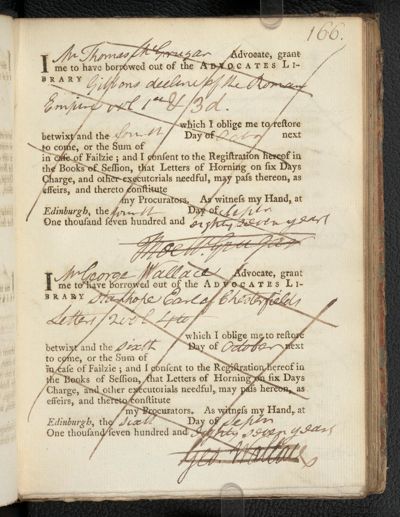 166.
I Mr Thomas McGrugar Advocate, grant
me to have borrowed out of the ADVOCATES LI-
BRARY Gibbons decline of the Roman
Empire vol 1st & 3d.
which I oblige me to restore
betwixt and the fourth Day of Octor next
to come, or the Sum of
in case of Failzie; and I consent to the Registration hereof in
the Books of Session, that Letters of Horning on six Days
Charge, and other executorials needful, may pass thereon, as
effeirs, and thereto constitute
my Procurators. As witness my Hand, at
Edinburgh, the fourth Day of Septr
One thousand seven hundred and eighty seven years
Thos McGrugar
I Mr George Wallace Advocate, grant
me to have borrowed out of the ADVOCATES LI-
BRARY Stanhope Earl of Chesterfields
Letters 2 vol 4to
which I oblige me to restore
betwixt and the sixth Day of October next
to come, or the Sum of
in case of Failzie; and I consent to the Registration hereof in
the Books of Session, that Letters of Horning on six Days
Charge, and other executorials needful, may pass hereon, as
effeirs, and thereto constitute
my Procurators. As witness my Hand, at
Edinburgh, the sixth Day of Septr
One thousand seven hundred and eighty seven years
Geo. Wallace